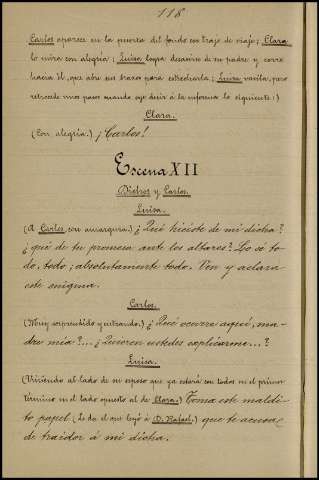 118
Carlos aparece en la puerta del fondo con traje de viaje; Clara
lo mira con alegría; Luisa logra desasirse de su padre y corre
hacia él, que abre sus brazos para estrecharla; Luisa vacila, pero
retrocede unos pasos cuando oye decir á la enferma lo siguiente:)
Clara.
(Con alegría.) ¡Carlos!
Escena XII
Dichos y Carlos.
Luisa.
(A Carlos, con amargura.) ¿Qué hiciste de mi dicha?
¿qué de tu promesa ante los altares? Lo sé to-
do, todo; absolutamente todo. Ven y aclara
este enigma.
Carlos.
(Muy sorprendido y entrando.) ¿Qué ocurre aquí, ma-
dre mía?... ¿Quieren ustedes explicarme...?
Luisa.
(Viniendo al lado de su esposo que ya estará con todos en el primer
término en el lado opuesto al de Clara.) Toma este maldi-
to papel (Le da el que leyó á D. Rafael.) que te acusa
de traidor á mi dicha.